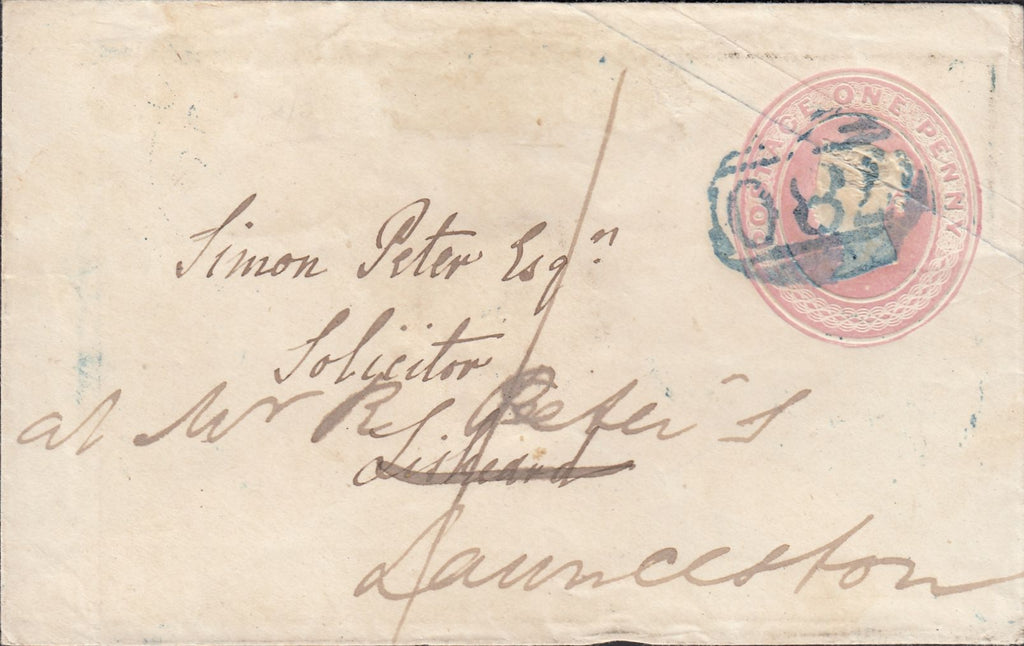 POSTAGE ONE PENNY
Simon Peter Esqr
Solicitor
at Mr R Peter's
Liskeard
Launceston